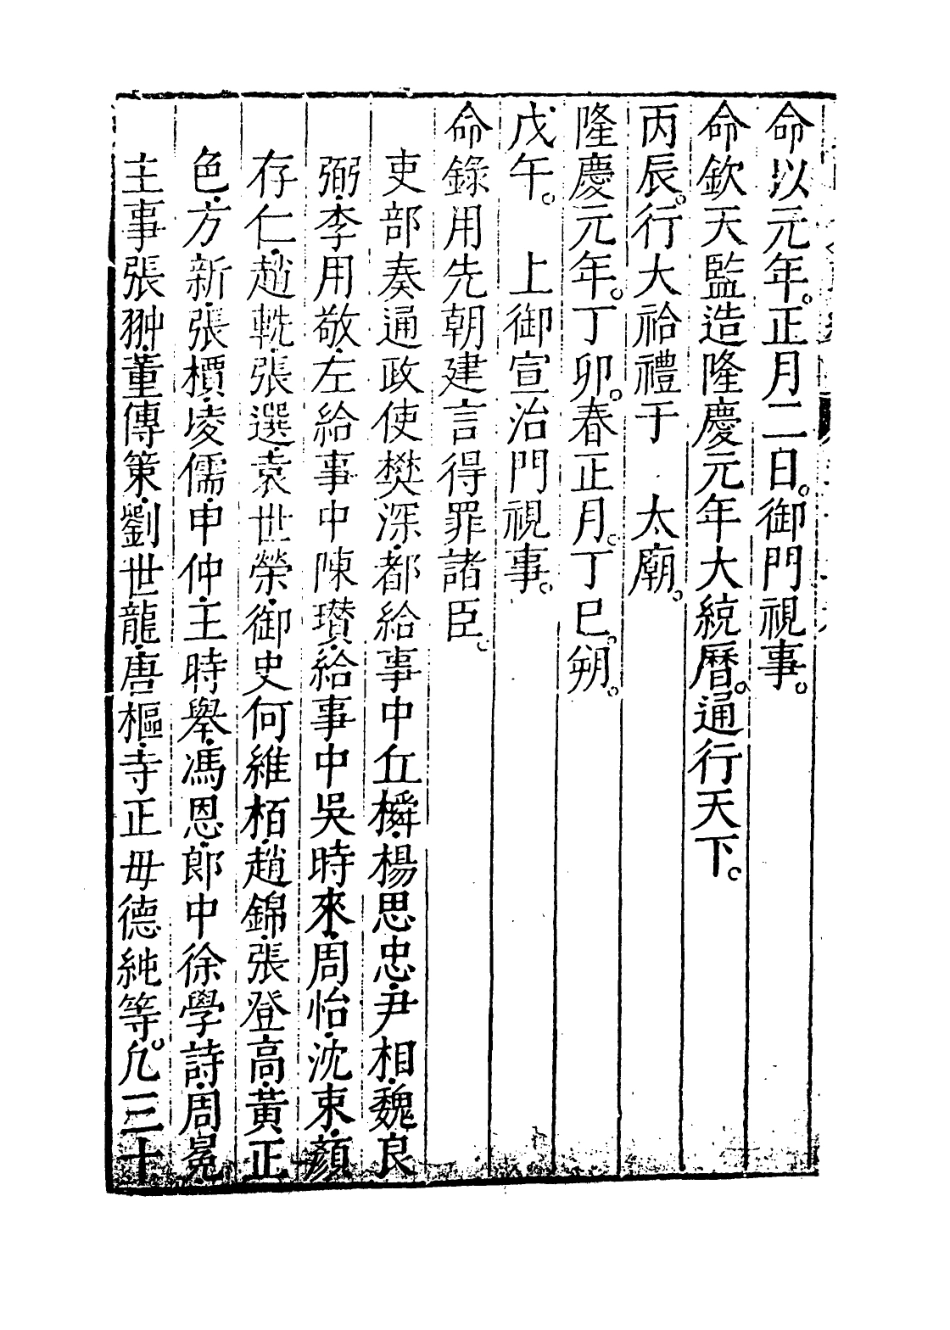 命以元年。正月二日。御門視事。
命欽天監造隆慶元年大統曆。通行天下。
丙辰。行大祫禮于　太廟。
隆慶元年。丁卯。春正月。丁巳。朔。
戊午。　上御宣治門視事。
命錄用先朝建言得罪諸臣。
吏部奏通政使樊深。都給事中丘橓。楊思忠。尹相。魏良
弼。李用敬。左給事中陳瓚。給事中吳時來。周怡。沈束。顏
存仁。趙軏。張選。袁世榮。御史何維栢。趙錦。張登高。黃正
色。方新。張檟。凌儒。申仲。王時舉。馮恩。郎中徐學詩。周冕
主事張翀。董傳策。劉世龍。唐樞。寺正毋德純等。凡三十